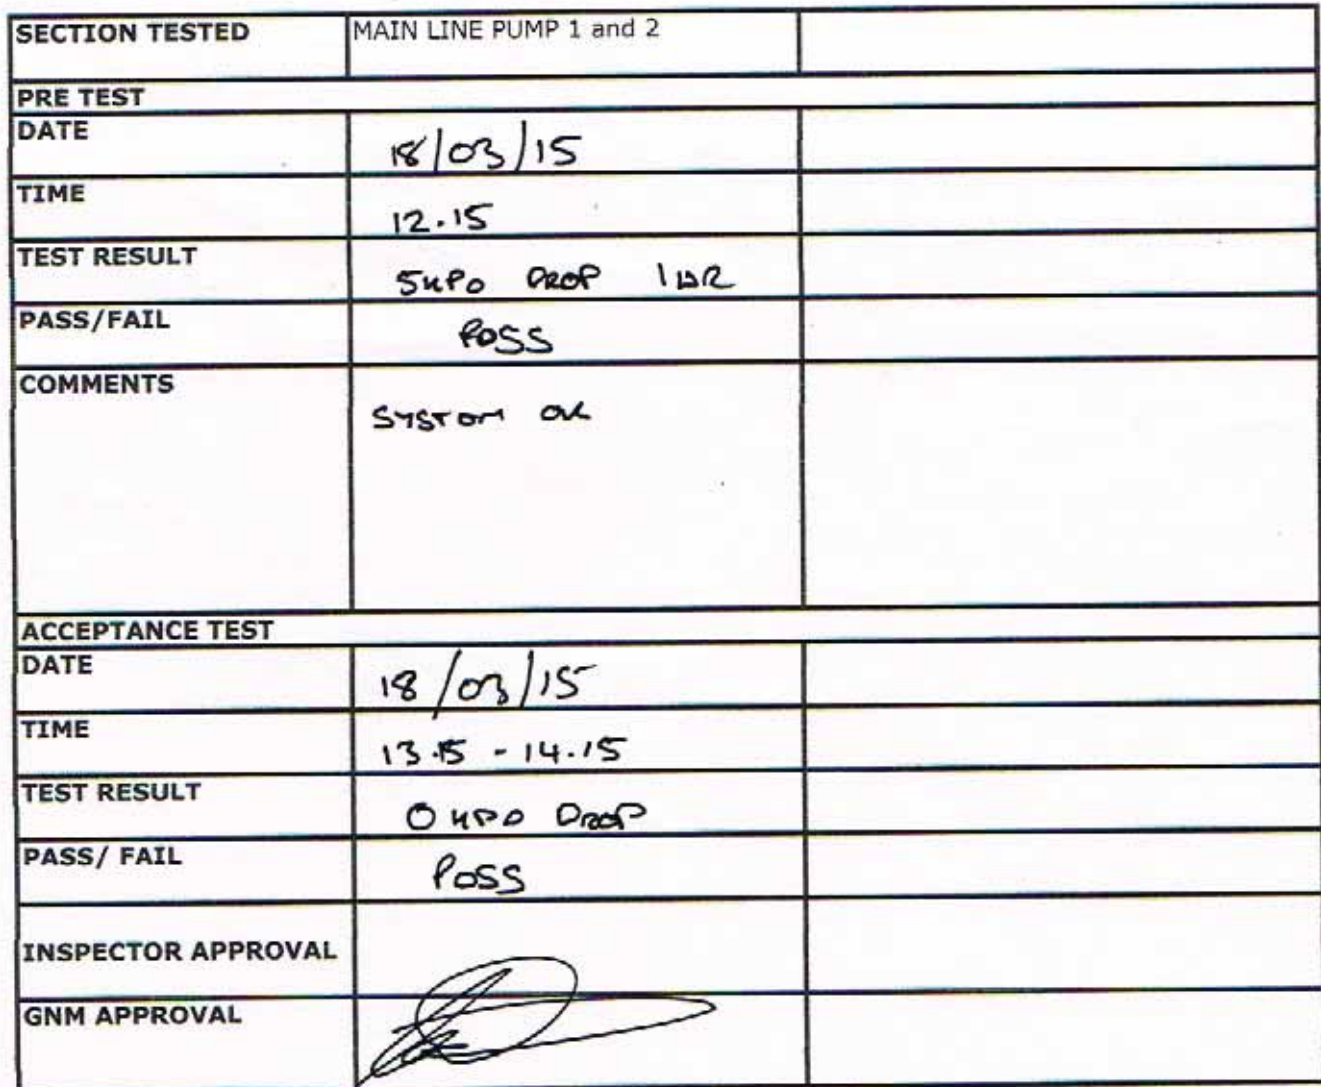 SECTION TESTED MAIN LINE PUMP 1 and 2
PRE TEST
DATE 18/03/15
TIME 12.15
TEST RESULT 5KPa DROP 1HR
PASS/FAIL PASS
COMMENTS
SYSTEM OK
ACCEPTANCE TEST
DATE 18/03/15
TIME 13.15 - 14.15
TEST RESULT 0 KPa DROP
PASS/ FAIL PASS
INSPECTOR APPROVAL
GNM APPROVAL